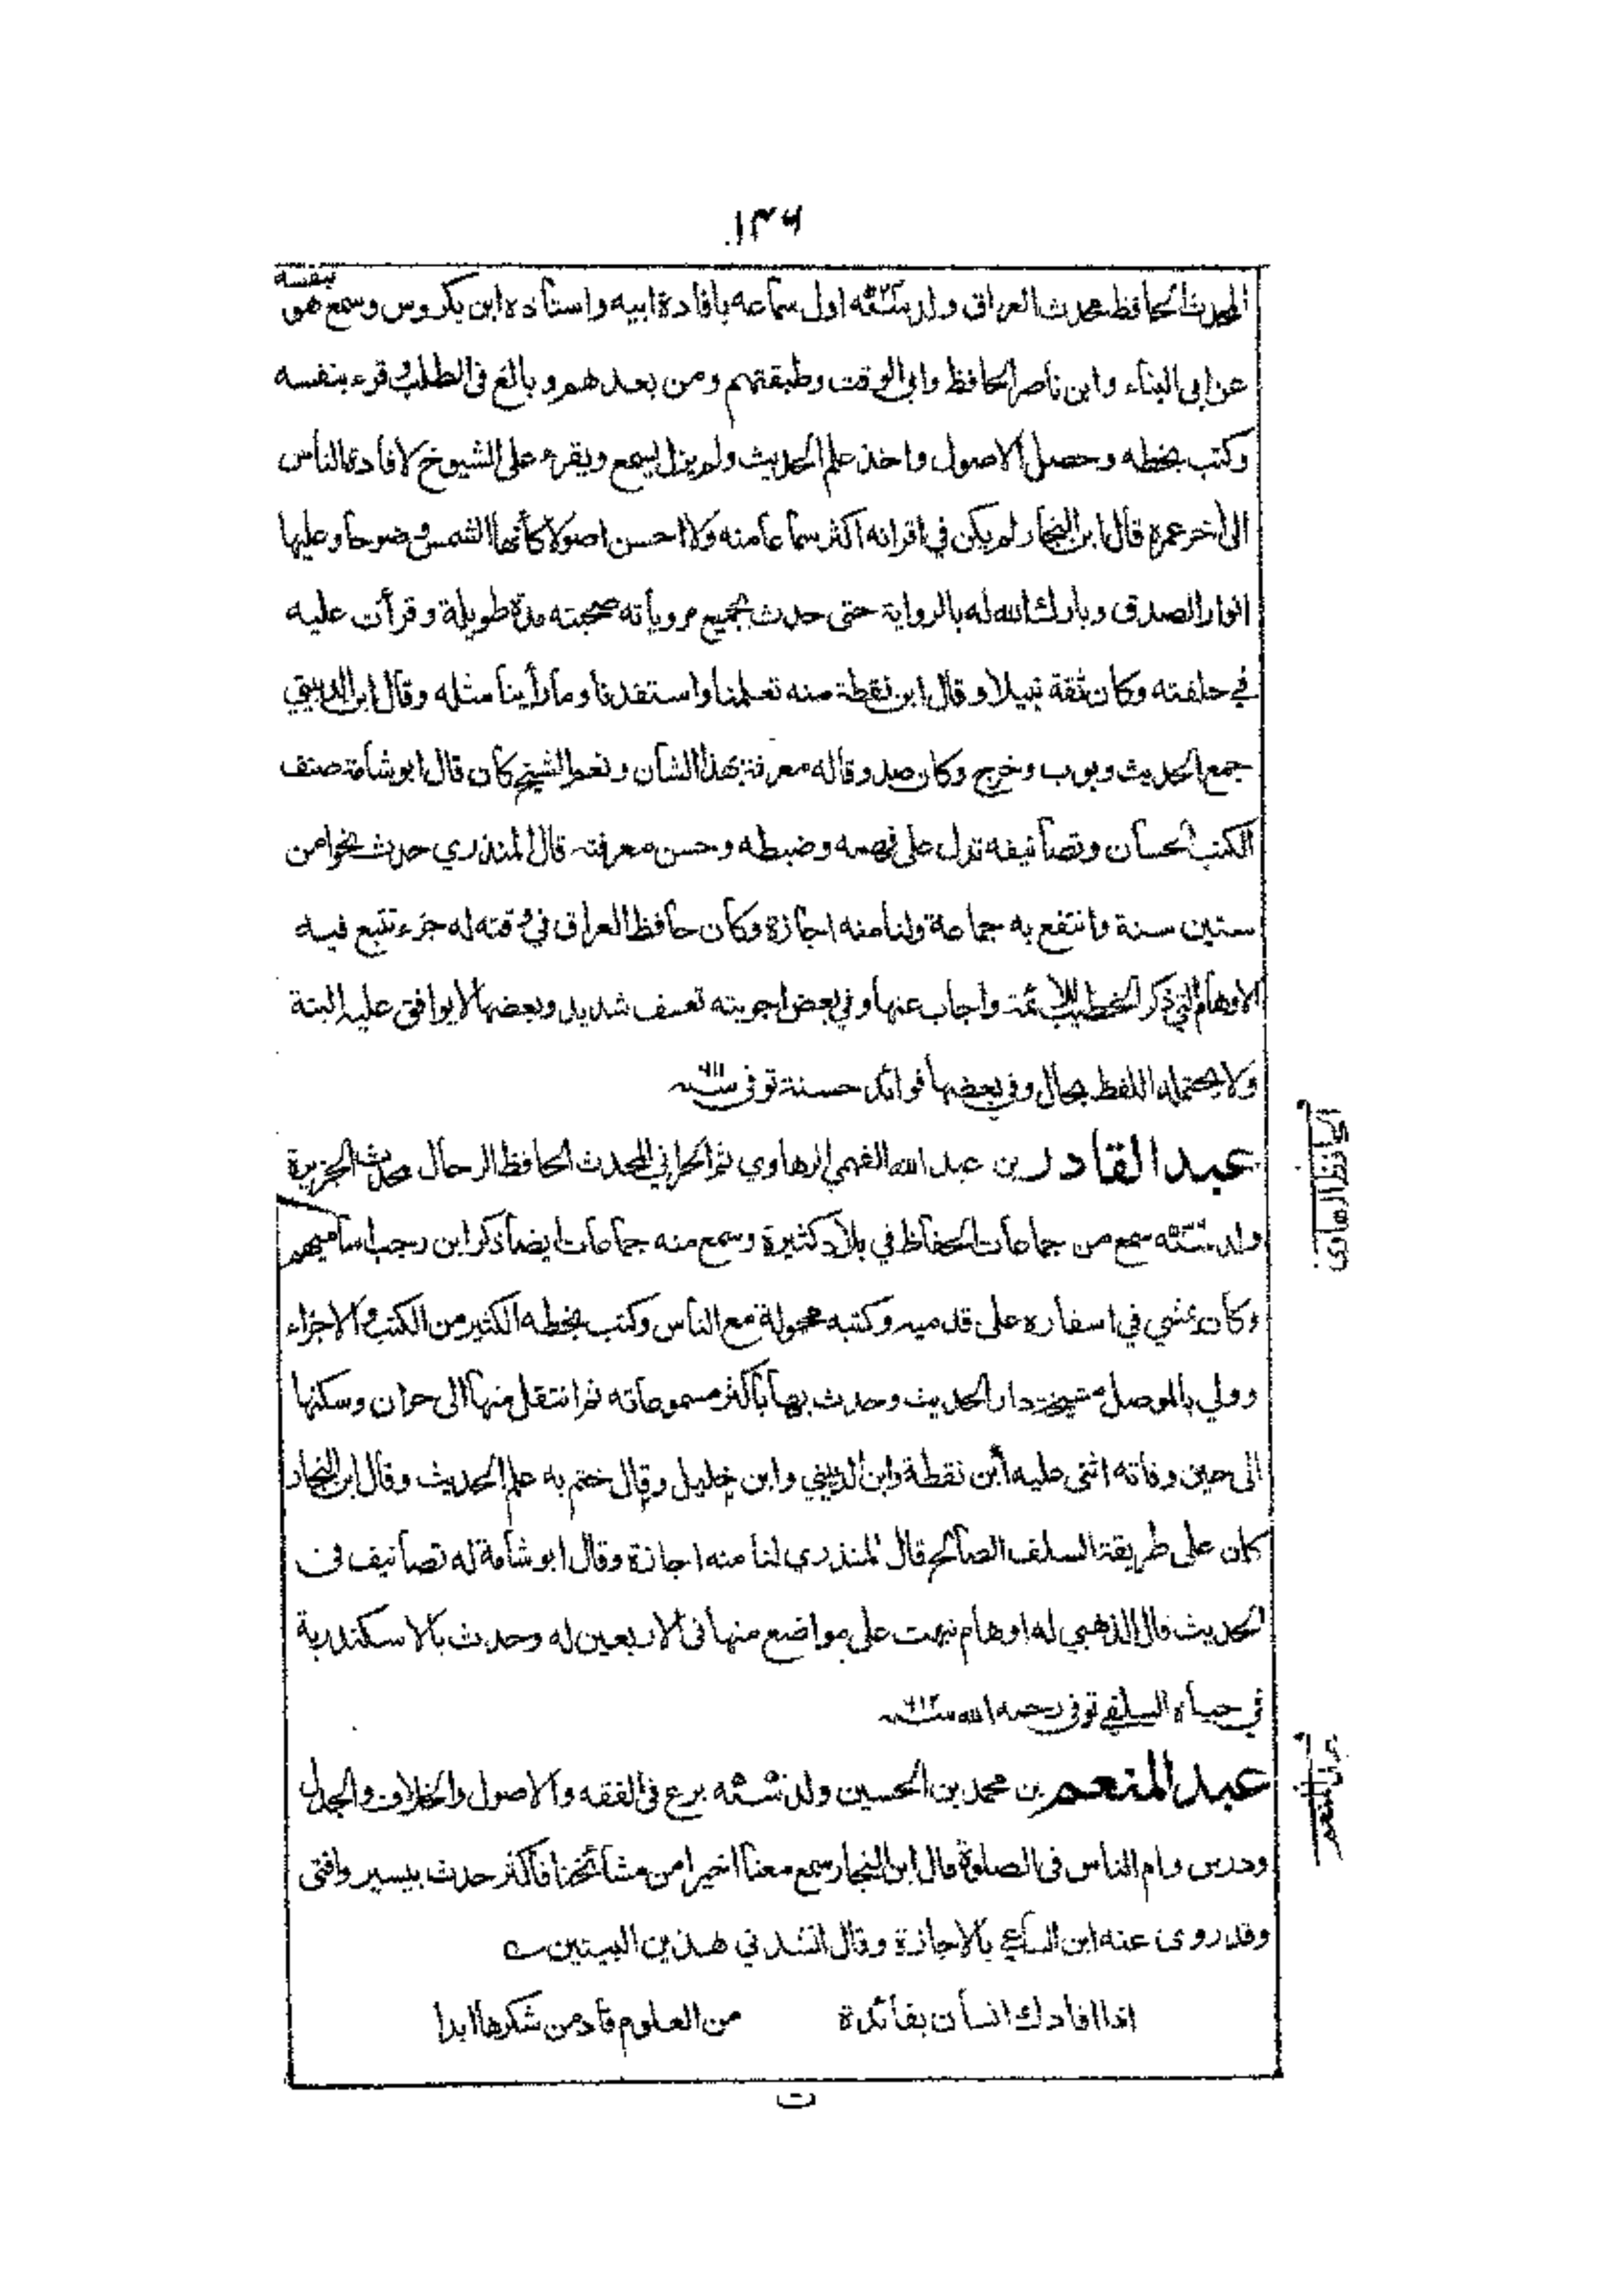 ١٣٦
بنفسه
المحدث الحافظ محدث العراق ولد سنة اول سماعه بافادة ابيه واستاذه ابن بكروس وسمع هو
عن ابي البناء وابن ناصر الحافظ وابي الوقت وطبقتهم ومن بعدهم وبالغ في الطلب وقرء بنفسه
وكتب بخطه وحصل الاصول واخذ علم الحديث ولم يزل يسمع ويقرء على الشيوخ لافادة الناس
الى أخر عمره قال ابن النجار لم يكن في اقرانه اكثر سماعا منه ولا احسن اصولا كأنها الشمس وضوحا وعليها
انوار الصدق وبارك الله له بالرواية حتى حدث بجميع مروياته صحبته مدة طويلة وقرأت عليه
في حلقته وكان ثقة نبيلا وقال ابن نقطة منه تعلمنا واستفدنا وما رأينا مثله وقال ابن الدبيثي
جمع الحديث وبوب وخرج وكان صدوقا له معرفة بهذا الشأن ونعم الشيخ كان قال ابو شامة صنف
الكتب الحسان وتصانيفه تدل على فهمه وضبطه وحسن معرفته قال المنذري حدث نحوا من
ستين سنة وانتفع به جماعة ولنا منه اجازة وكان حافظ العراق في وقته له جزء تتبع فيه
الاوهام التي ذكر الخطيب للائمة واجاب عنها وفي بعض اجوبته تعسف شديد وبعضها لا يوافق عليه البتة
ولا يحتمله اللفظ بحال وفي بعضها فوائد حسنة توفى سنة ٦١١
عبد القادر بن عبد الله الفهمي الرهاوي ثم الحراني المحدث الحافظ الرحال محدث الجزيرة
ولد سنة سمع من جماعات الحفاظ في بلاد كثيرة وسمع منه جماعات ايضا ذكر ابن رجب اساميهم
وكان يمشي في اسفاره على قدميه وكتبه محمولة مع الناس وكتب بخطه الكثير من الكتب والاجزاء
وولي بالموصل مشيخة دار الحديث وحدث بها بأكثر مسموعاته ثم انتقل منها الى حران وسكنها
الى حين وفاته اثنى عليه ابن نقطة وابن الدبيثي وابن خليل وقال ختم به علم الحديث وقال ابن النجار
كان على طريقة السلف الصالح قال المنذري لنا منه اجازة وقال ابو شامة له تصانيف في
الحديث قال الذهبي له اوهام نبهت على مواضع منها في الاربعين له وحدث بالاسكندرية
في حياة السلفي توفى رحمه الله سنة ٦١٢
عبد المنعم بن محمد بن الحسين ولد سنة برع في الفقه والاصول والخلاف والجدل
ودرس وام الناس في الصلوة قال ابن النجار سمع معنا اخيرا من مشائخنا فاكثر حدث بيسير وافتى
وقد روى عنه ابن الساعي بالاجازة وقال انشدني هذين البيتين
اذا افادك انسان بفائدة من العلوم فأدمن شكرها ابدا
ت
الحافظ الرهاوي
عبد المنعم